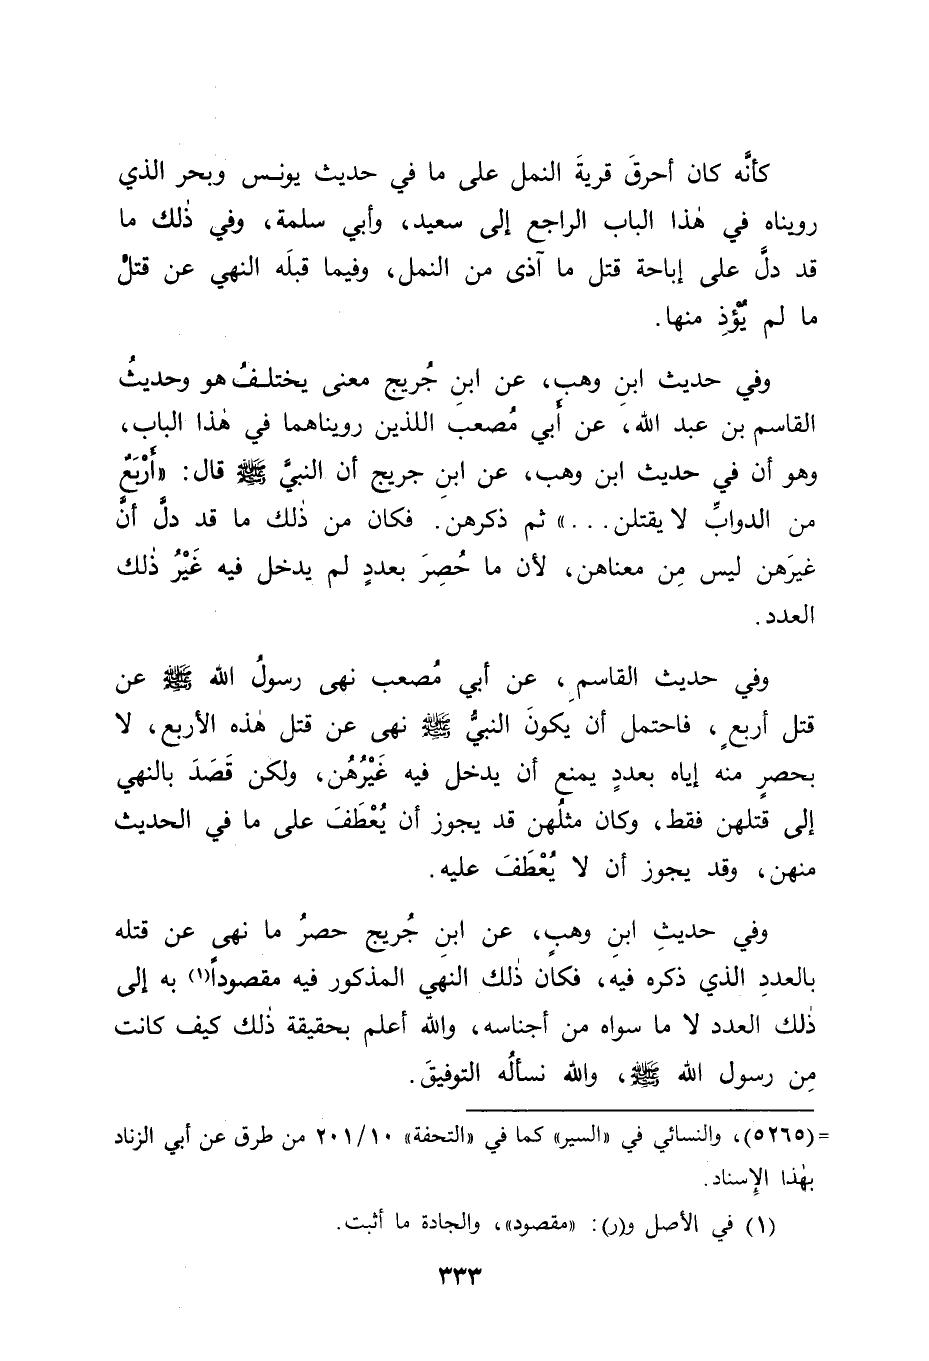 كأنَّه كان أحرقَ قريةَ النمل على ما في حديث يونس وبحر الذي
رويناه في هٰذا الباب الراجع إلى سعيد، وأبي سلمة، وفي ذٰلك ما
قد دلَّ على إباحة قتل ما آذى من النمل، وفيما قبلَه النهي عن قتلْ
ما لم يُؤْذِ منها.
وفي حديث ابنِ وهبٍ، عن ابنِ جُريج معنى يختلفُ هو وحديثُ
القاسم بن عبد الله، عن أبي مُصعب اللذين رويناهما في هٰذا الباب،
وهو أن في حديث ابن وهب، عن ابنِ جريج أن النبيَّ ﷺ قال: «أَرْبَعٌ
من الدوابِّ لا يقتلن...» ثم ذكرهن. فكان من ذٰلك ما قد دلَّ أنَّ
غيرَهن ليس مِن معناهن، لأن ما حُصِرَ بعددٍ لم يدخل فيه غَيْرُ ذٰلك
العدد.
وفي حديث القاسمِ، عن أبي مُصعب نهى رسولُ الله ﷺ عن
قتل أربعٍ، فاحتمل أن يكونَ النبيُّ ﷺ نهى عن قتل هٰذه الأربع، لا
بحصرٍ منه إياه بعددٍ يمنع أن يدخل فيه غَيْرُهُن، ولكن قَصَدَ بالنهي
إلى قتلهن فقط، وكان مثلُهن قد يجوز أن يُعْطَفَ على ما في الحديث
منهن، وقد يجوز أن لا يُعْطَفَ عليه.
وفي حديثِ ابنِ وهبٍ، عن ابنِ جُريج حصرُ ما نهى عن قتله
بالعددِ الذي ذكره فيه، فكان ذٰلك النهي المذكور فيه مقصوداً(١) به إلى
ذٰلك العدد لا ما سواه من أجناسه، والله أعلم بحقيقة ذٰلك كيف كانت
مِن رسول الله ﷺ، والله نسألُه التوفيقَ.
= (٥٢٦٥)، والنسائي في «السير» كما في «التحفة» ٢٠١/١٠ من طرق عن أبي الزناد
بهٰذا الإِسناد.
(١) في الأصل و(ر): «مقصود»، والجادة ما أثبت.
٣٣٣